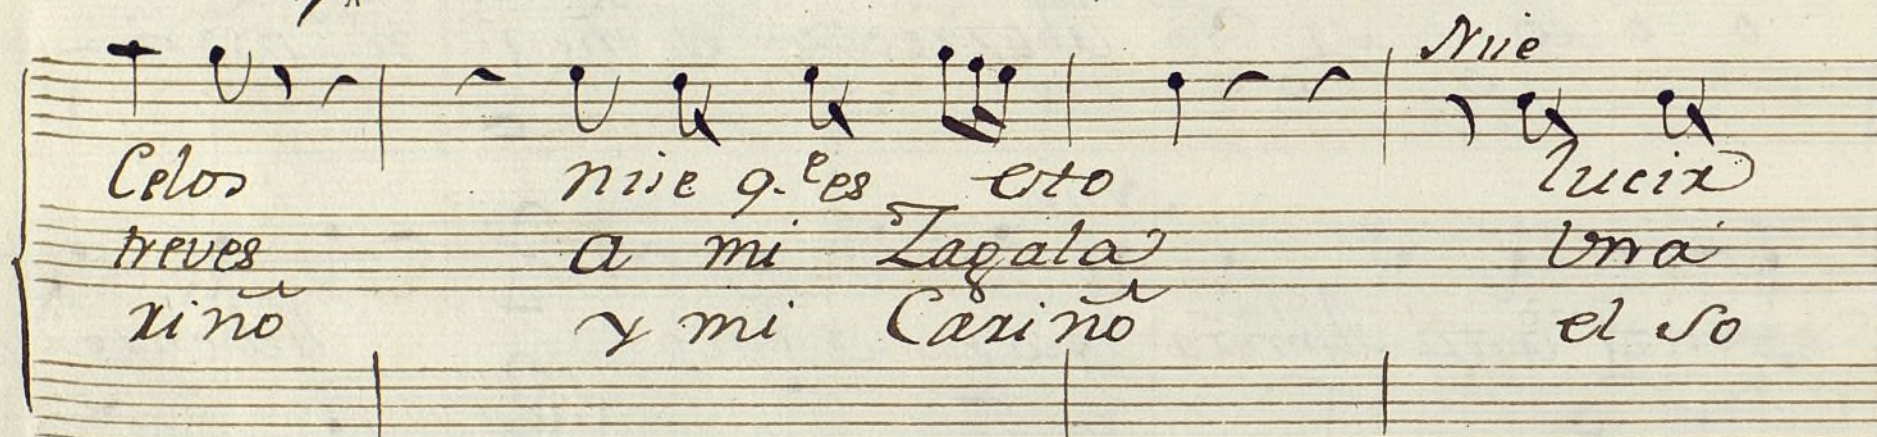 Nise
Celos nise q.e es esto lucir
treves a mi Zagala una
riño y mi Cariño el so